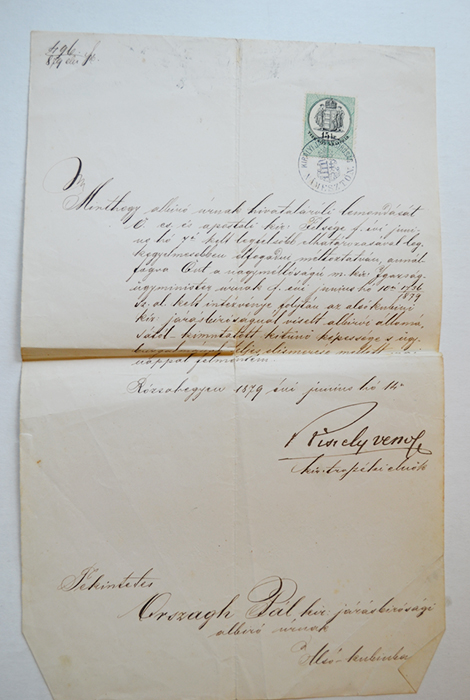 496
879
15 kr
Minthogy albíró úrnak hivataláróli lemondását
Ő cs. és apostoli kir. Felsége f. évi juni-
us hó 7é kelt legfelsőbb elhatározásával leg-
kegyelmesebben elfogadni méltóztatván, annál
fogva Önt a nagyméltóságú m. kir. Igazság-
ügyminister urnak f. évi junius hó 10én
1879
sz. a. kelt intézvénye folytán az alsókubini
kir. járásbiróságnál viselt albírói állomá-
sától kimutatott kitünő képessége s
elismerése mellett
nappal felmentem.
Rózsahegyen 1879 évi junius hó 14
kir. törvszéki elnök
Tekintetes
Országh Pál kir. járásbirósági
albíró úrnak
Alsó-Kubinba